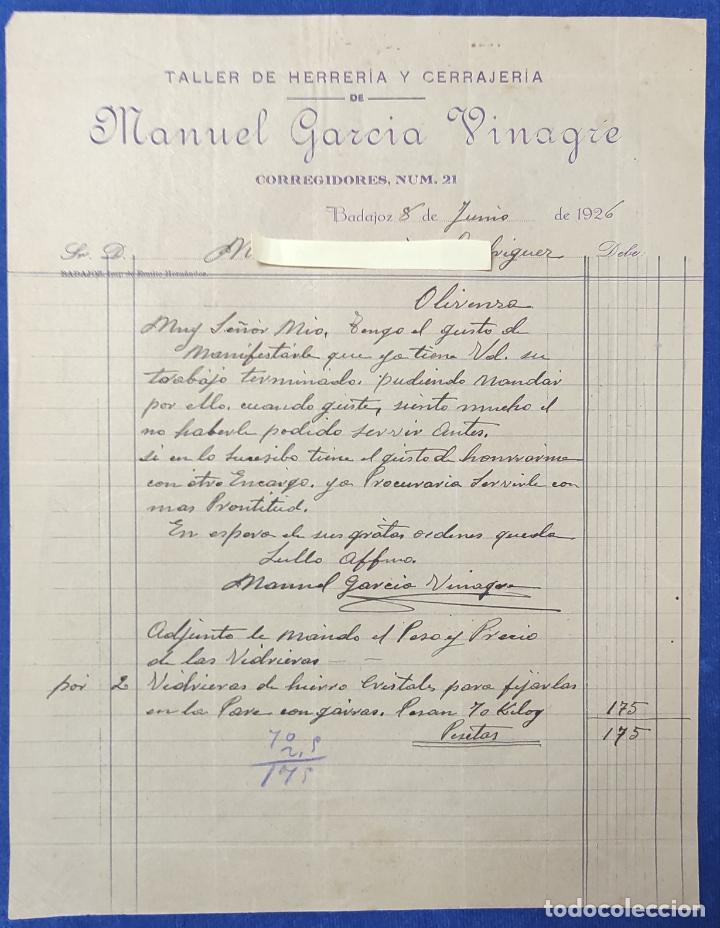 TALLER DE HERRERÍA Y CERRAJERÍA
DE
Manuel Garcia Vinagre
CORREGIDORES, NUM. 21
Badajoz 8 de Junio de 1926
Sr. D. M driguez Debe
BADAJOZ. Imp. de Benito Hernández.
Olivenza
Muy Señor Mio. Tengo el gusto de
Manifestarle que ya tiene Vd. su
trabajo terminado. pudiendo Mandar
por ello. cuando guste, siento mucho el
no haberle podido servir antes.
si en lo sucesibo tiene el gusto de honrrarme
con otro Encargo. yo Procuraria Servirle con
mas Prontitud.
En espera de sus gratas ordenes queda
Sullo Affmo.
Manuel Garcia Vinagre
Adjunto le Mando el Peso y Precio
de las Vidrieras — —
por 2 Vidrieras de hierro Cristales para fijarlas
en la Pare con garras. Pesan 70 Kilos 175
Pesetas 175
70
2,5
175
todocoleccion
todocoleccion.net